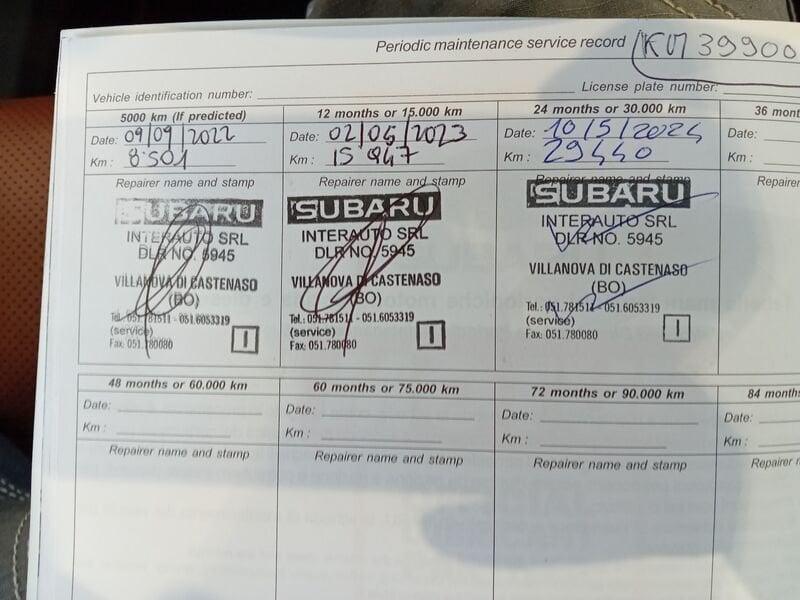 Periodic maintenance service record KM 39900
Vehicle identification number: License plate number:
5000 km (If predicted)
Date: 09/09/2022
Km: 8.501
Repairer name and stamp
SUBARU
INTERAUTO SRL
DLR NO. 5945
VILLANOVA DI CASTENASO
(BO)
Tel.: 051.781511 - 051.6053319
(service)
Fax: 051.780080
I
12 months or 15.000 km
Date:
Km: 15 847
Repairer name and stamp
SUBARU
INTERAUTO SRL
DLR NO. 5945
VILLANOVA DI CASTENASO
(BO)
Tel.: 051.781511 - 051.6053319
(service)
Fax: 051.780080
I
24 months or 30.000 km
Date: 10/5/2024
Km: 29440
Repairer name and stamp
SUBARU
INTERAUTO SRL
DLR NO. 5945
VILLANOVA DI CASTENASO
(BO)
Tel.: 051.781511 - 051.6053319
(service)
Fax: 051.780080
I
36
Date:
Km:
48 months or 60.000 km
Date:
Km:
Repairer name and stamp
60 months or 75.000 km
Date:
Km:
Repairer name and stamp
72 months or 90.000 km
Date:
Km:
Repairer name and stamp
84 months
Date:
Km:
Repairer